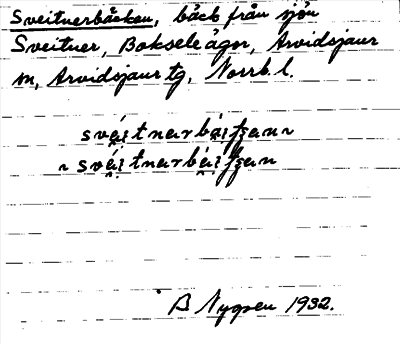 Sveitnerbäcken, bäck från sjön
Sveitner, Boksele ägor, Arvidsjaur
sn, Arvidsjaur tg, Norrb. l.
svéi̯tnarbéi̯tʃan ~
~ své̝i̯tnarbé̝i̯tʃan
B Nygren 1932.